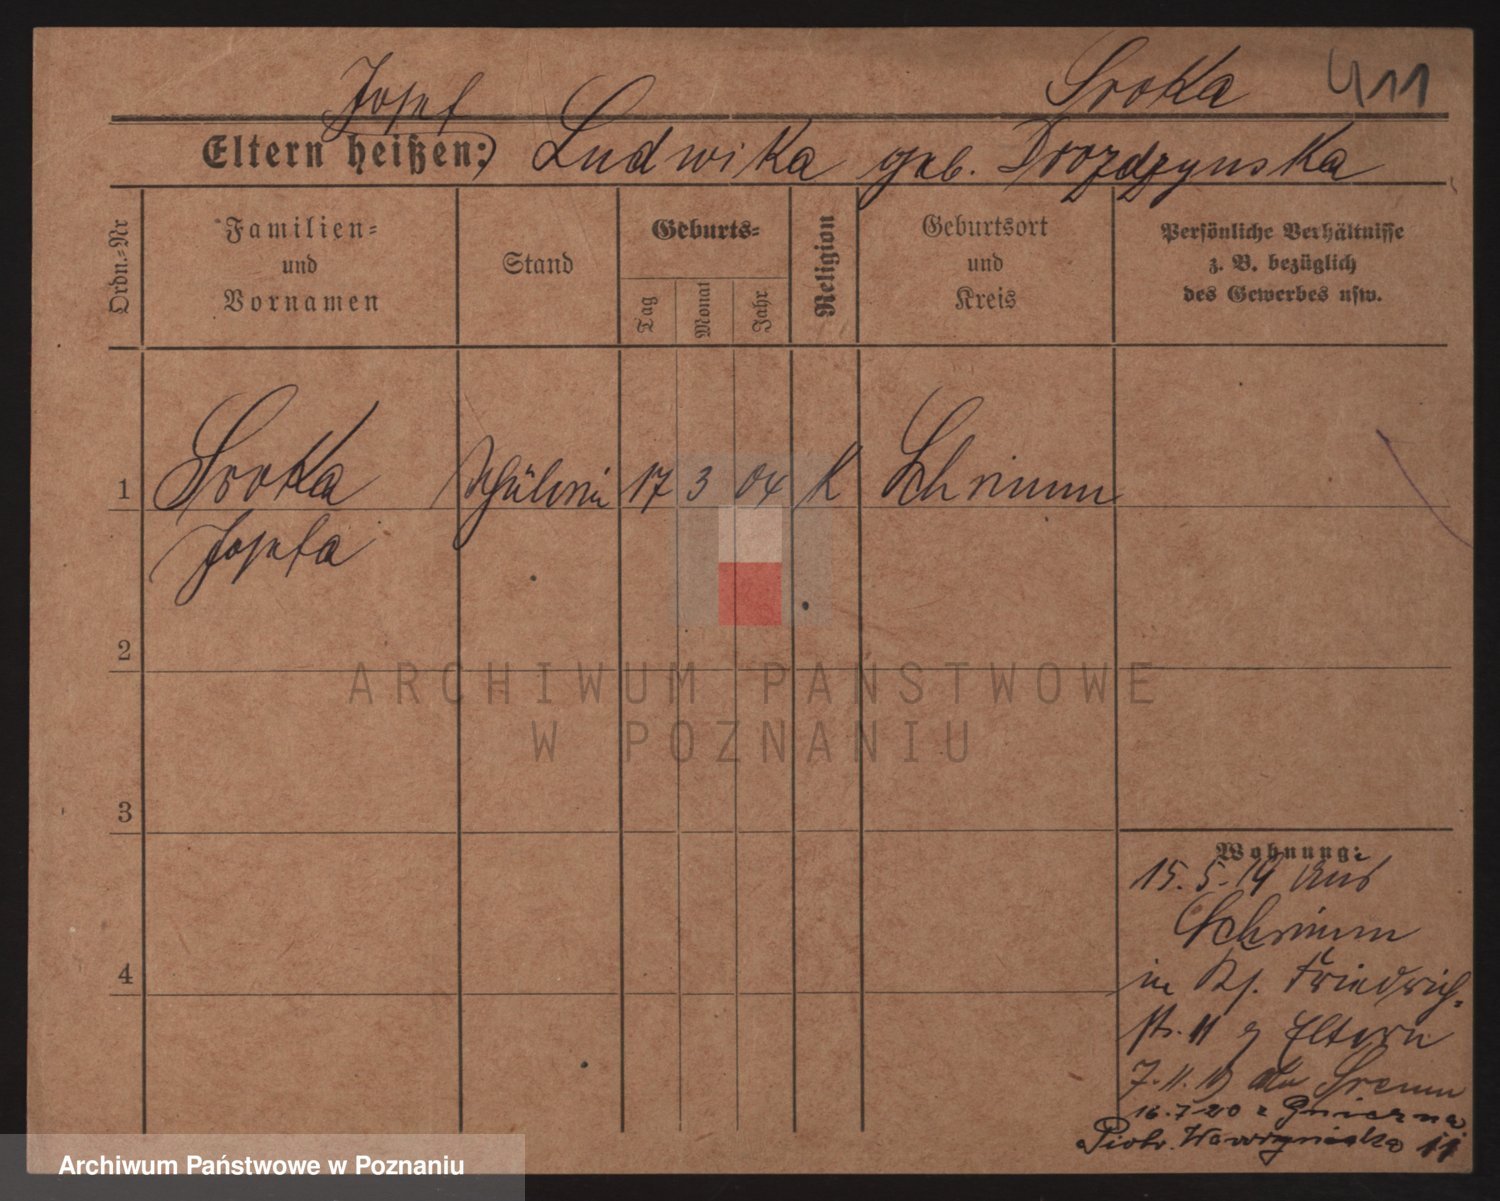 Josef Sroka 411
Eltern heißen: Ludwika geb. Drozdzynska
Ordn.-Nr
Familien-
und
Vornamen
Stand
Geburts-
Tag
Monat
Jahr
Religion
Geburtsort
und
Kreis
Persönliche Verhältnisse
z. B. bezüglich
des Gewerbes usw.
1 Sroka Schülerin 17 3 04 K Schrimm
Josefa
2
3
4
Wohnung:
15. 5. 19 aus
Schrimm
in Kf. Friedrich-
str. 11 Eltern
7. 11. 19 Sremu
16. 7 20 z Gniezna
Piotr. Wawrzyniaka 11
ARCHIWUM PAŃSTWOWE
W POZNANIU
Archiwum Państwowe w Poznaniu